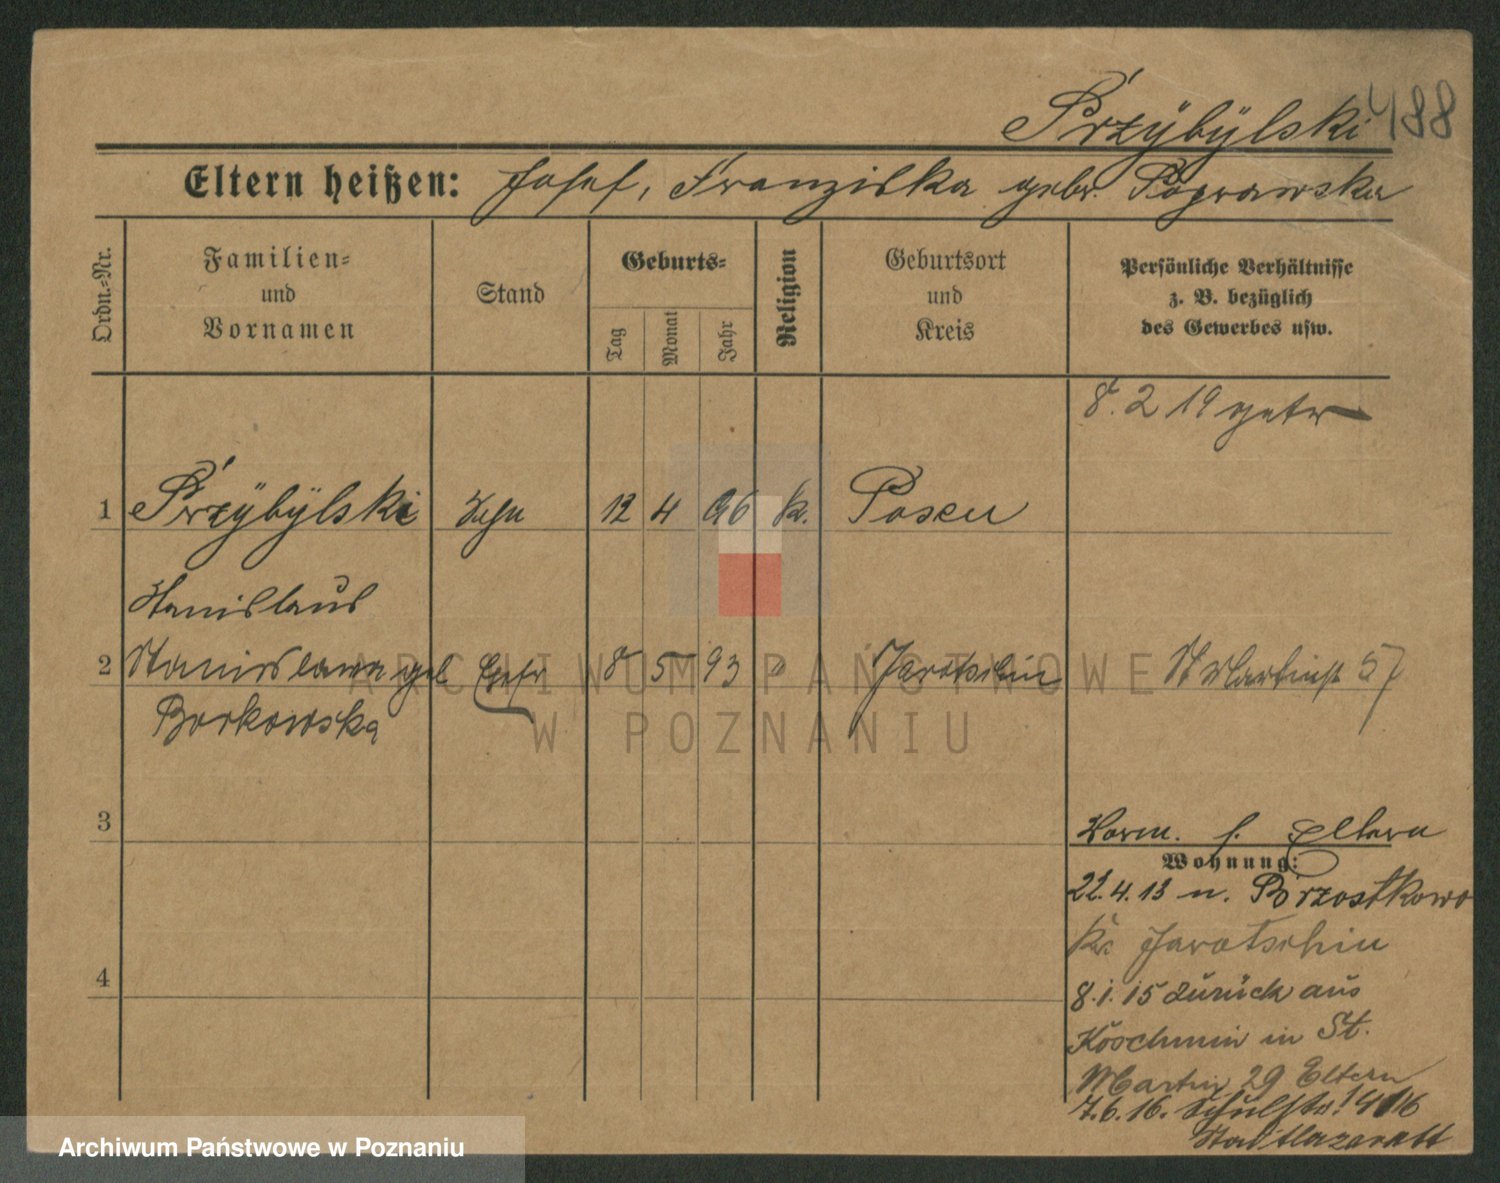 Przybylski 488
Eltern heißen: Josef, Franziska gebr. Poprawska
Ordn.-Nr.
Familien- und Vornamen
Stand
Geburts-
Tag
Monat
Jahr
Religion
Geburtsort und Kreis
Persönliche Verhältnisse z. B. bezüglich des Gewerbes usw.
8. 2 19 getr
1 Przÿbÿlski Sohn 12 4 96 k. Posen
Stanislaus
2 Stanislawa geb Ehefr 8 5 93 " Jarotschin St Martinstr 57
Borkowska
3
Vorm. s. Eltern
Wohnung:
22.4.13 n. Brzostkowo
4
Kr Jarotschin
8.1.15 zurück aus
Koschmin in St.
Martin 29 Eltern
7.6.16. Schulstr 14/16
Stadtlazarett
ARCHIWUM PAŃSTWOWE
W POZNANIU
Archiwum Państwowe w Poznaniu